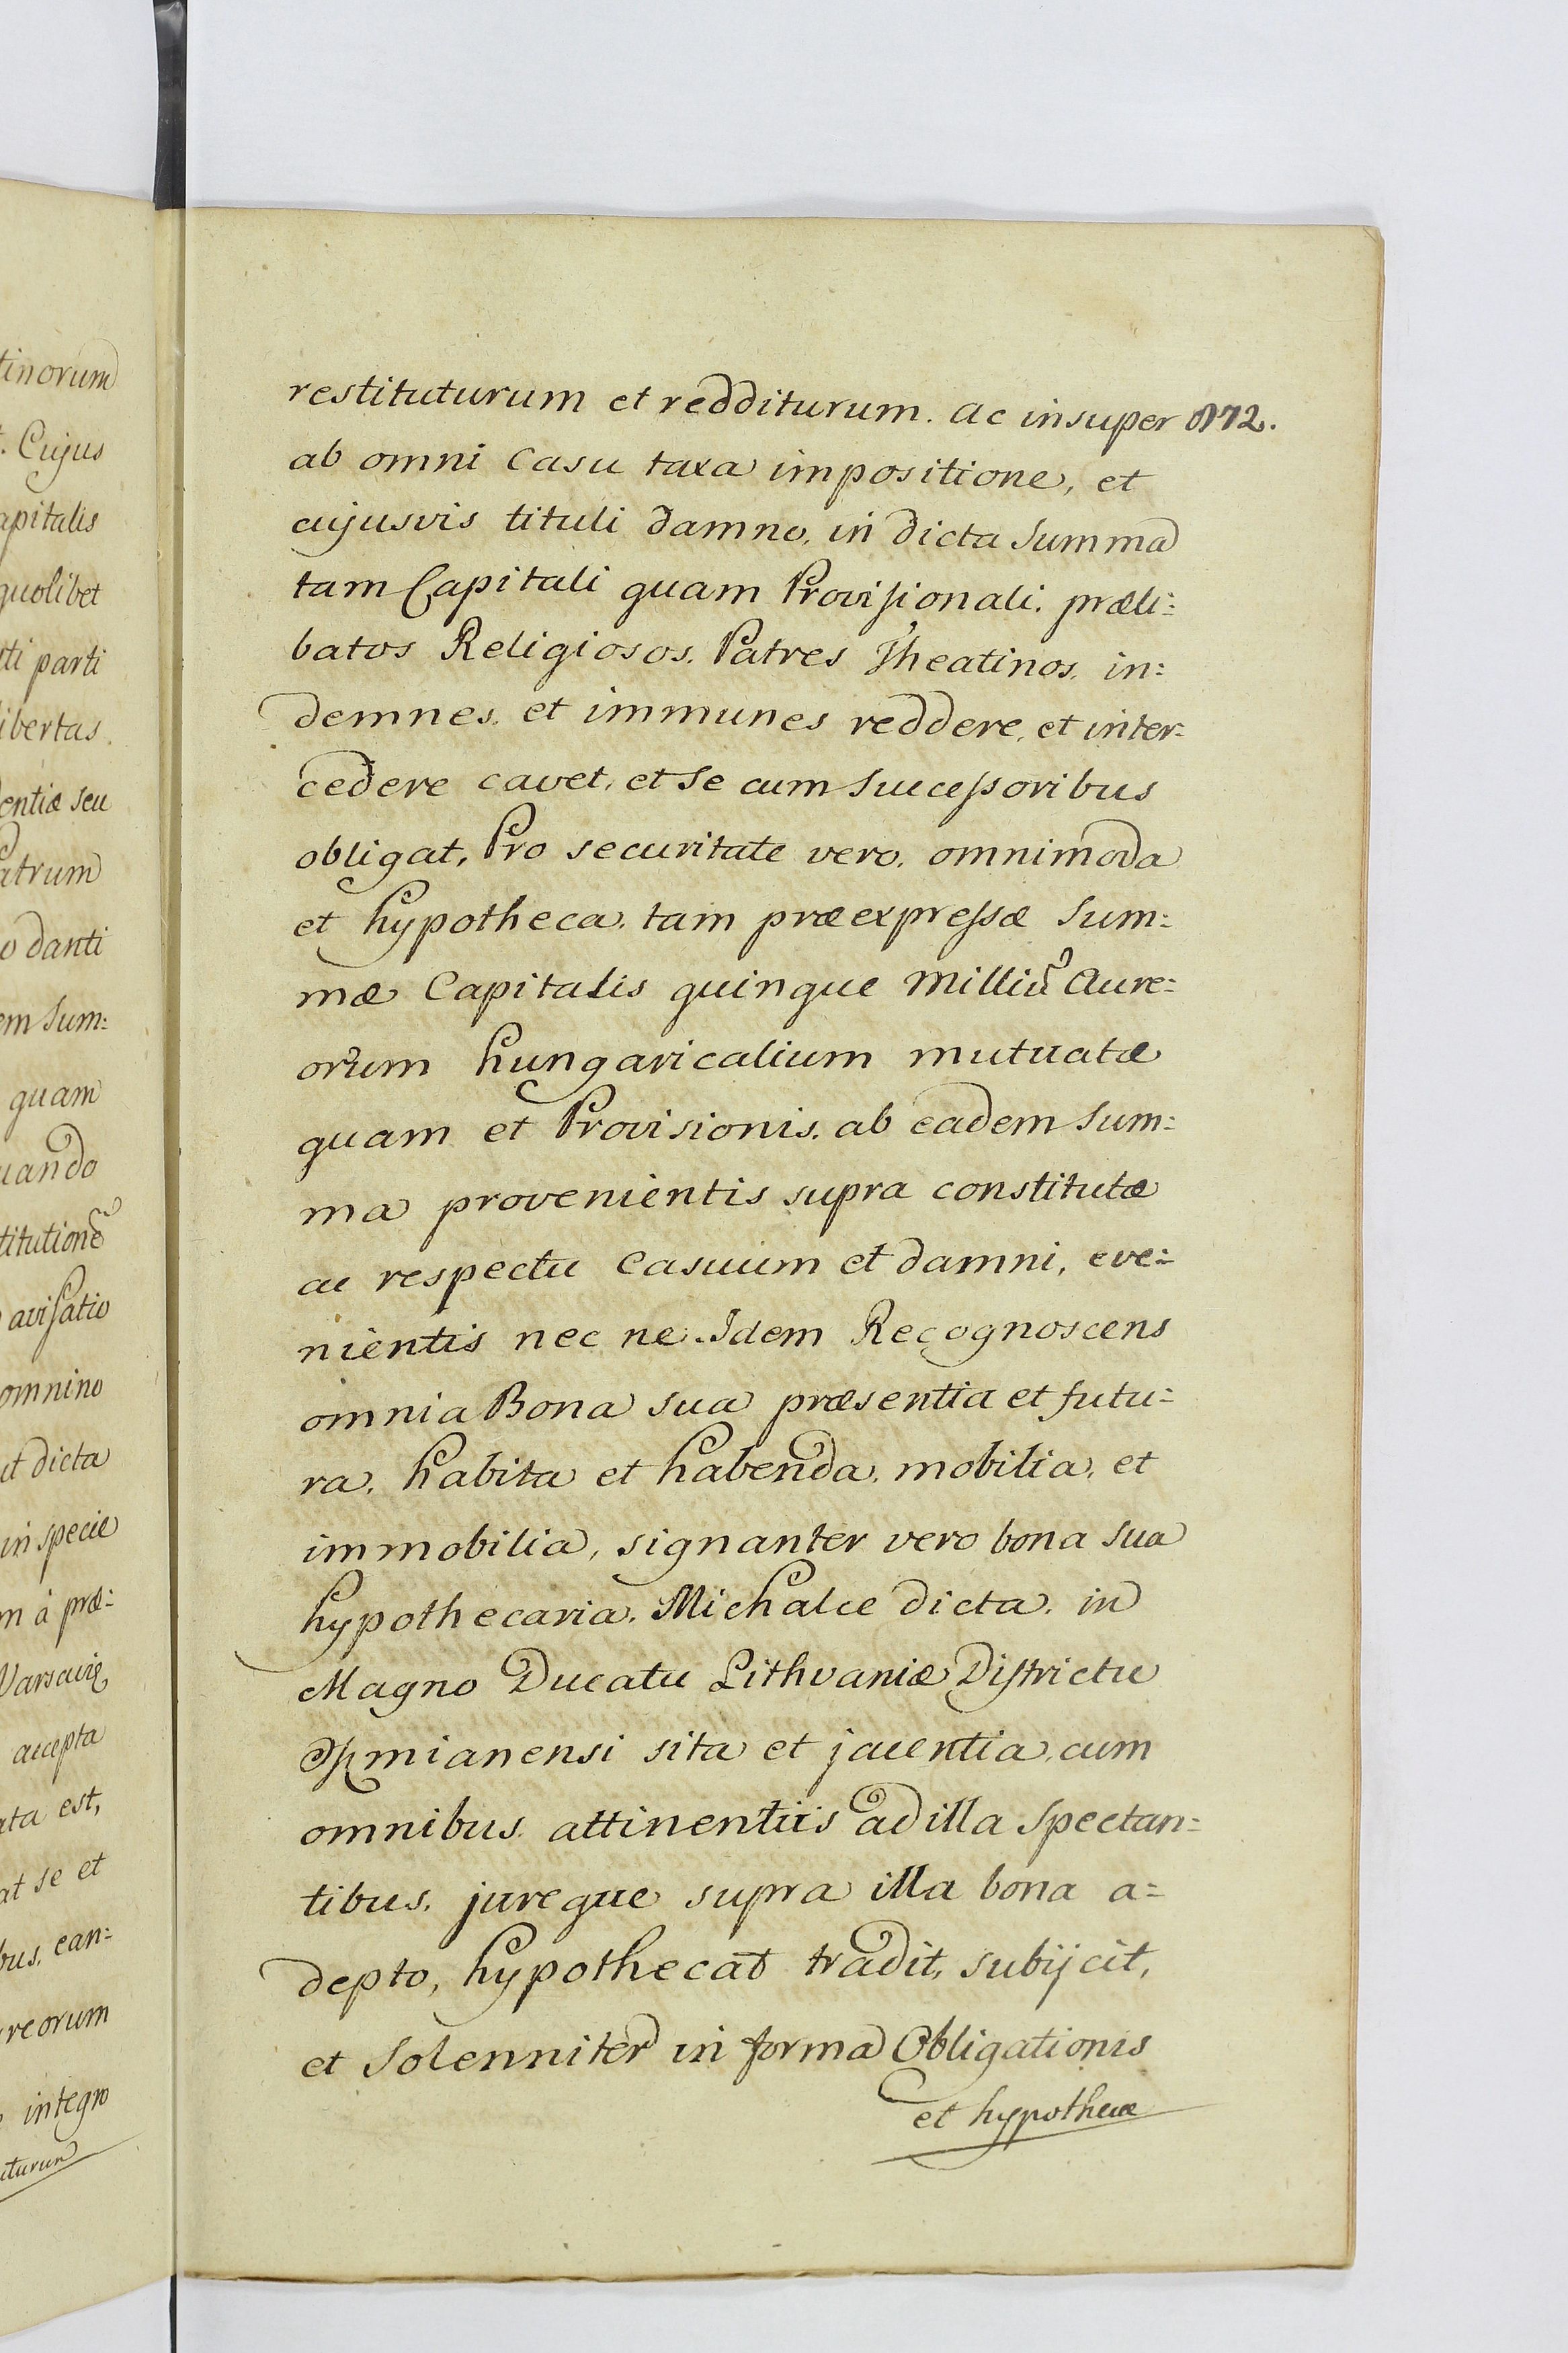 tinorum
Cujus
apitalis
quolibet
rti parti
libertas.
entiæ seu
atrum
o danti
em Sum:
quam
uando
titutionẽ
avisatio
omnino
ut dicta
in specie
m à præ:
Varsaviæ
accepta
ata est,
at se et
bus, ean:
reorum
integro
iturum
restituturum et redditurum. ac insuper 172.
ab omni Casu taxa impositione, et
cujusvis tituli damno, in dicta Summa
tam Capitali quam Provisionali. præli:
batos Religiosos. Patres Theatinos, in:
demnes. et immunes reddere, et inter:
cedere cavet, et Se cum Successoribus
obligat, Pro securitate vero. omnimoda
et hypotheca, tam præexpressæ Sum:
mæ Capitalis quinque Milliũ Aure:
orum hungaricalium mutuatæ
quam et Provisionis, ab eadem Sum:
ma provenientis supra constitutæ
ac respectu Casuum et damni, eve:
nientis nec ne. Idem Recognoscens
omnia Bona sua præsentia et futu:
ra, habita et habenda, mobilia, et
immobilia, signanter vero bona Sua
hypothecaria, Michalce dicta, in
Magno Ducatu Lithvaniæ Districtu
Oszmianensi sita et jacentia, cum
omnibus. attinentiis ad illa Spectan:
tibus, jureque supra illa bona a=
depto, hypothecat tradit, subijcit,
et Solenniter in forma Obligationis
et hypothecæ